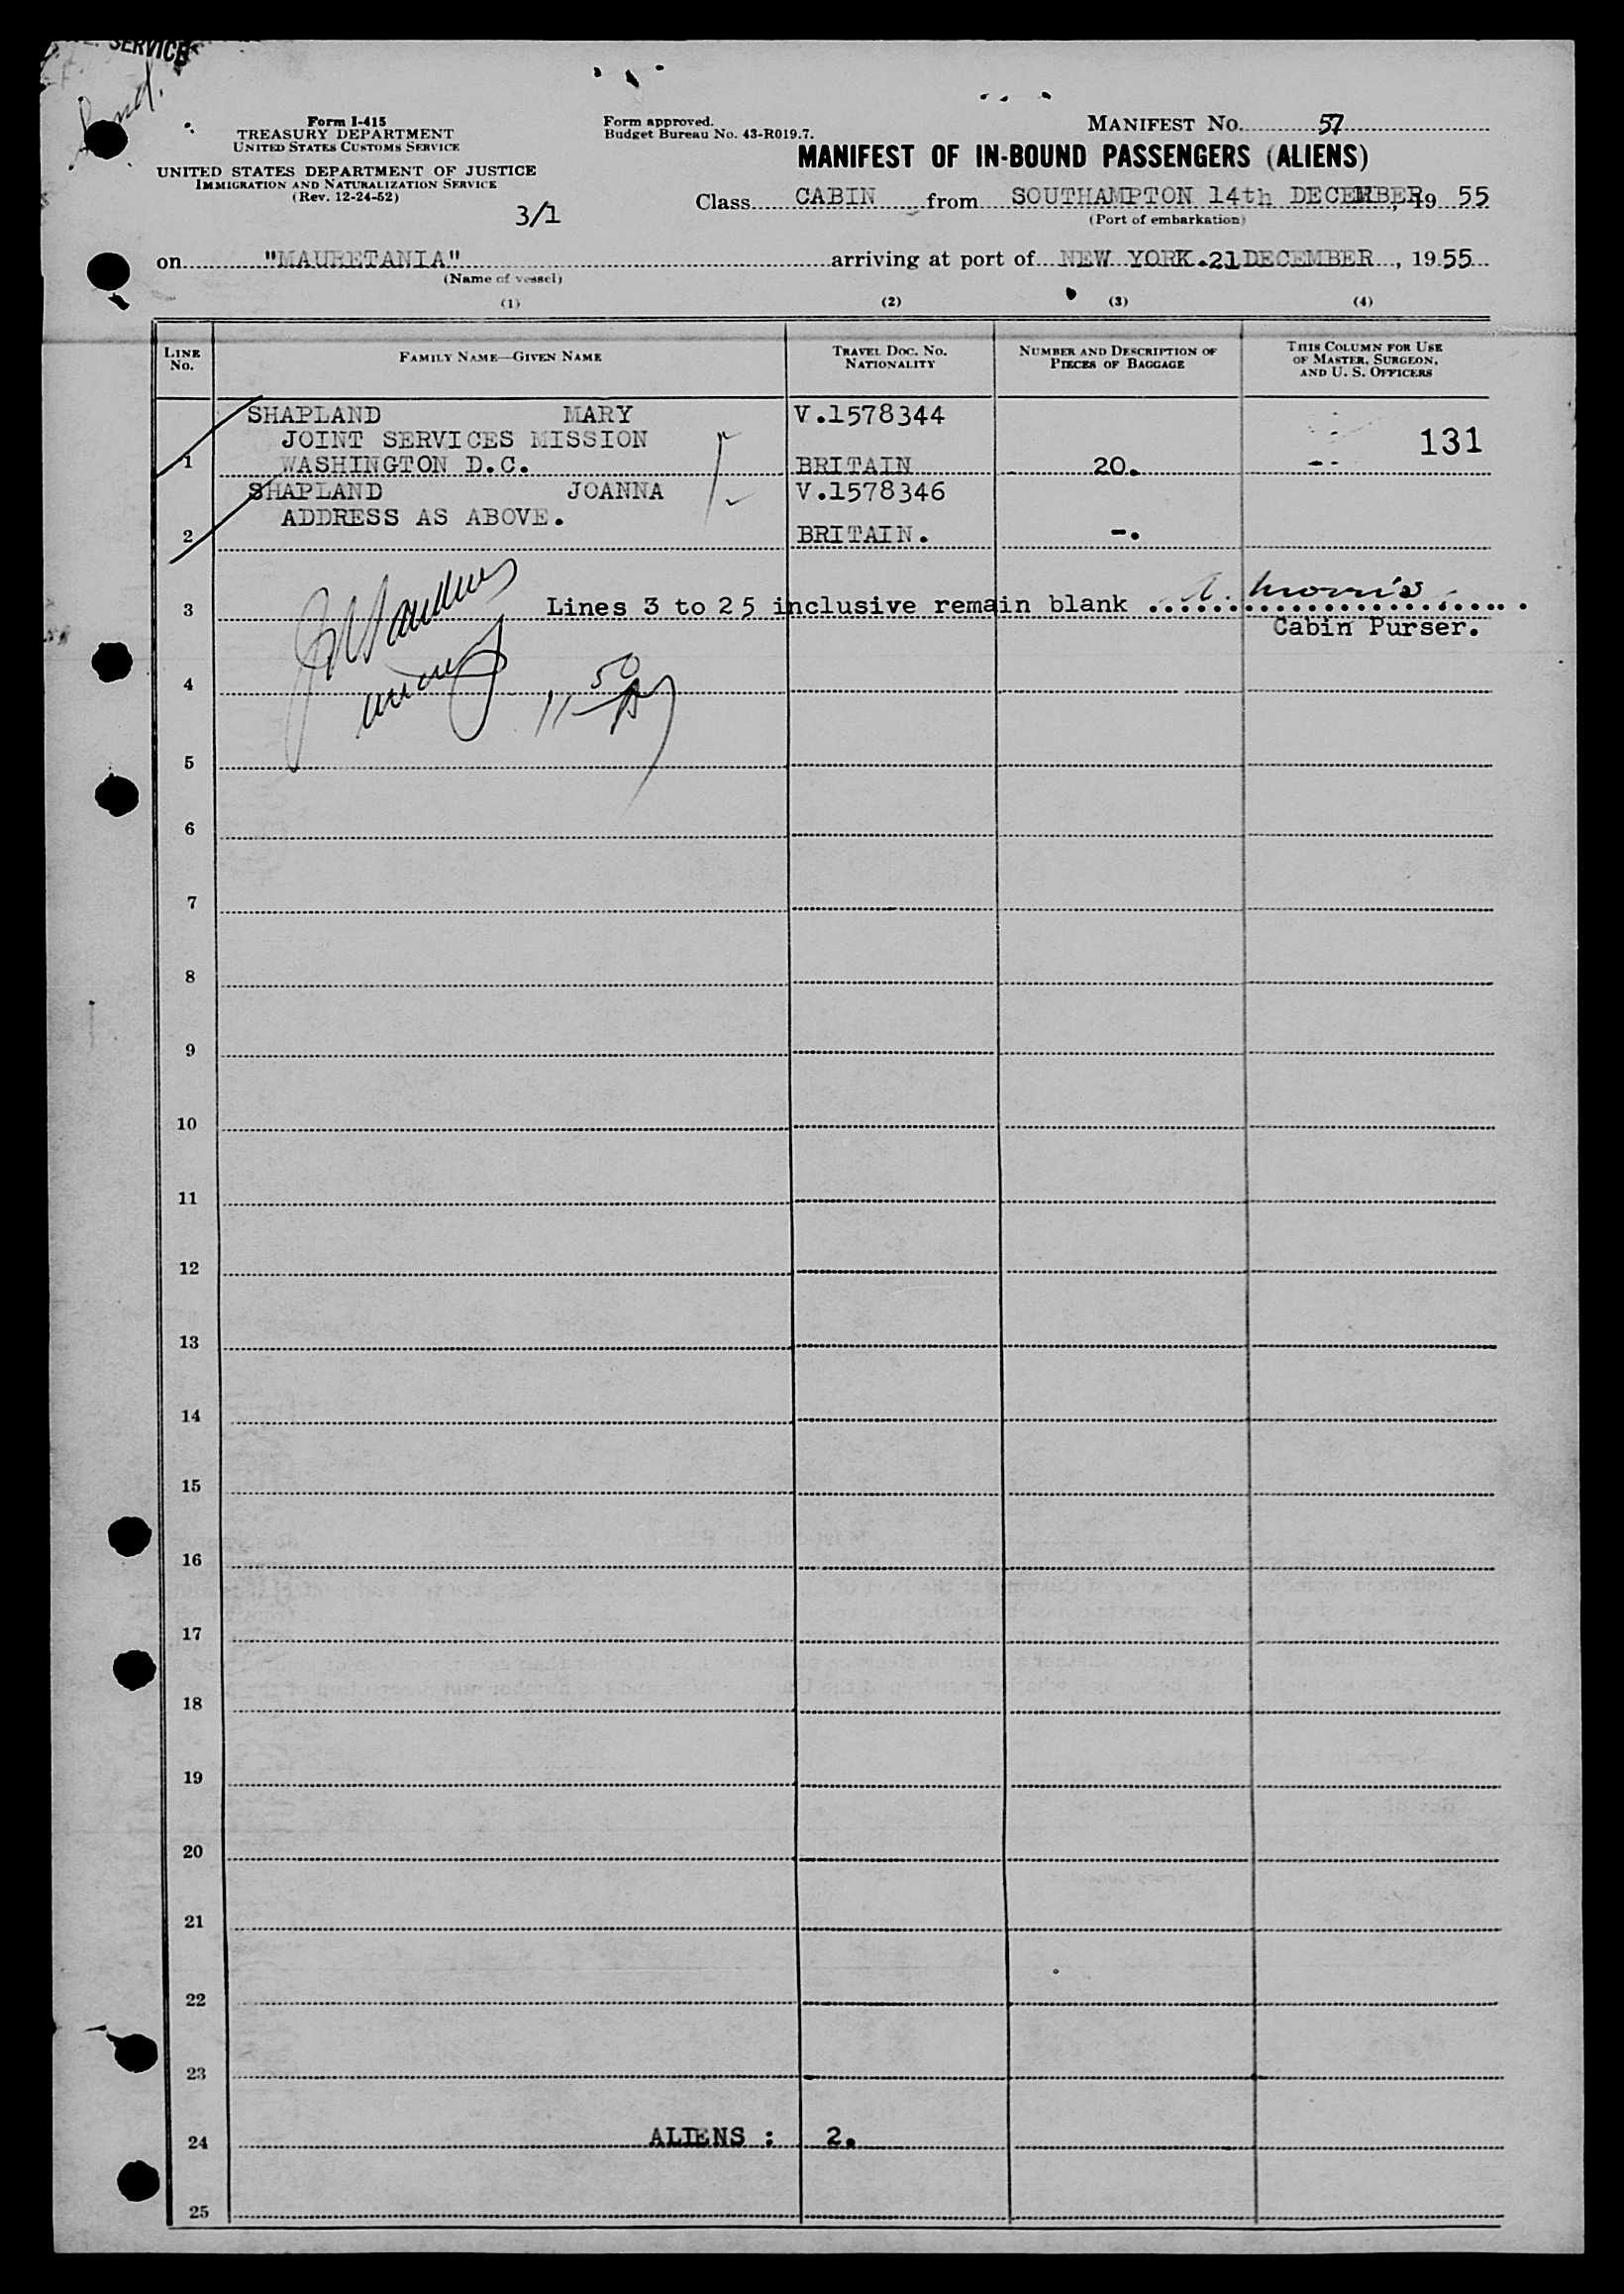 SERVICE
Form I-415
TREASURY DEPARTMENT
UNITED STATES CUSTOMS SERVICE
UNITED STATES DEPARTMENT OF JUSTICE
IMMIGRATION AND NATURALIZATION SERVICE
(Rev. 12-24-52)
3/1
Form approved.
Budget Bureau No. 43-R019.7.
MANIFEST NO. 57
MANIFEST OF IN-BOUND PASSENGERS (ALIENS)
Class CABIN from SOUTHAMPTON 14th DECEMBER, 19 55
(Port of embarkation)
on "MAURETANIA" arriving at port of NEW YORK. 21 DECEMBER, 19 55
(Name of vessel)
(1) (2) (3) (4)
LINE NO. FAMILY NAME—GIVEN NAME TRAVEL DOC. NO. NATIONALITY NUMBER AND DESCRIPTION OF PIECES OF BAGGAGE THIS COLUMN FOR USE OF MASTER, SURGEON, AND U. S. OFFICERS
SHAPLAND MARY V.1578344
JOINT SERVICES MISSION 131
1 WASHINGTON D.C. BRITAIN 20. --
SHAPLAND JOANNA V.1578346
ADDRESS AS ABOVE.
2 BRITAIN. -.
3 Lines 3 to 25 inclusive remain blank Morris
Cabin Purser.
4 11 50
5
6
7
8
9
10
11
12
13
14
15
16
17
18
19
20
21
22
23
24 ALIENS : 2.
25